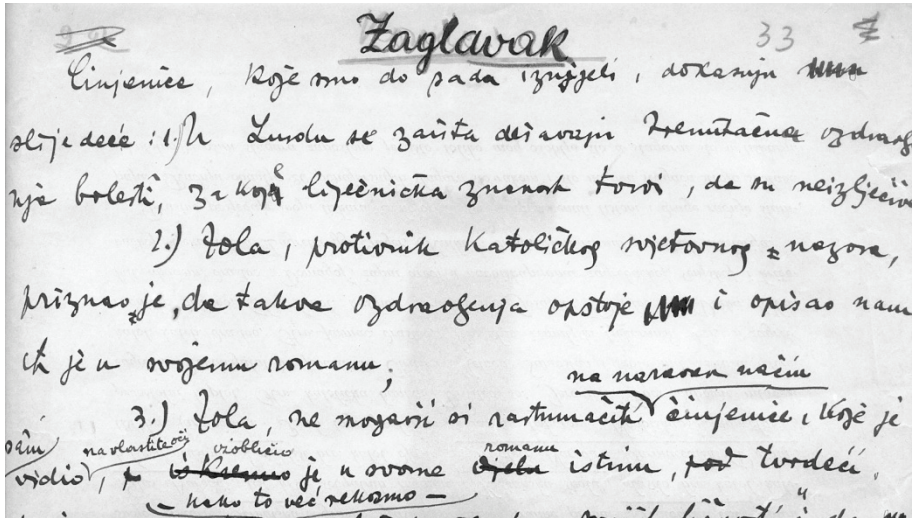 Zaglavak
33
Činjenice, koje smo do sada iznijeli, dokazuju
slijedeće: 1.) U Lurdu se zaista dešavaju trenutačna ozdravlje
nja bolesti, za koje liječnička znanost tvrdi, da su neizlječive
2.) Zola, protivnik Katoličkog svjetovnog nazora,
priznao je, da takva ozdravljenja opstoje i opisao nam
ih je u svojemu romanu;
na naravan način
3.) Zola, ne mogavši si rastumačiti činjenice, koje je
sâm na vlastite oči izobličio romanu
vidio, je u svome istinu, tvrdeći,
– kako to već rekosmo –